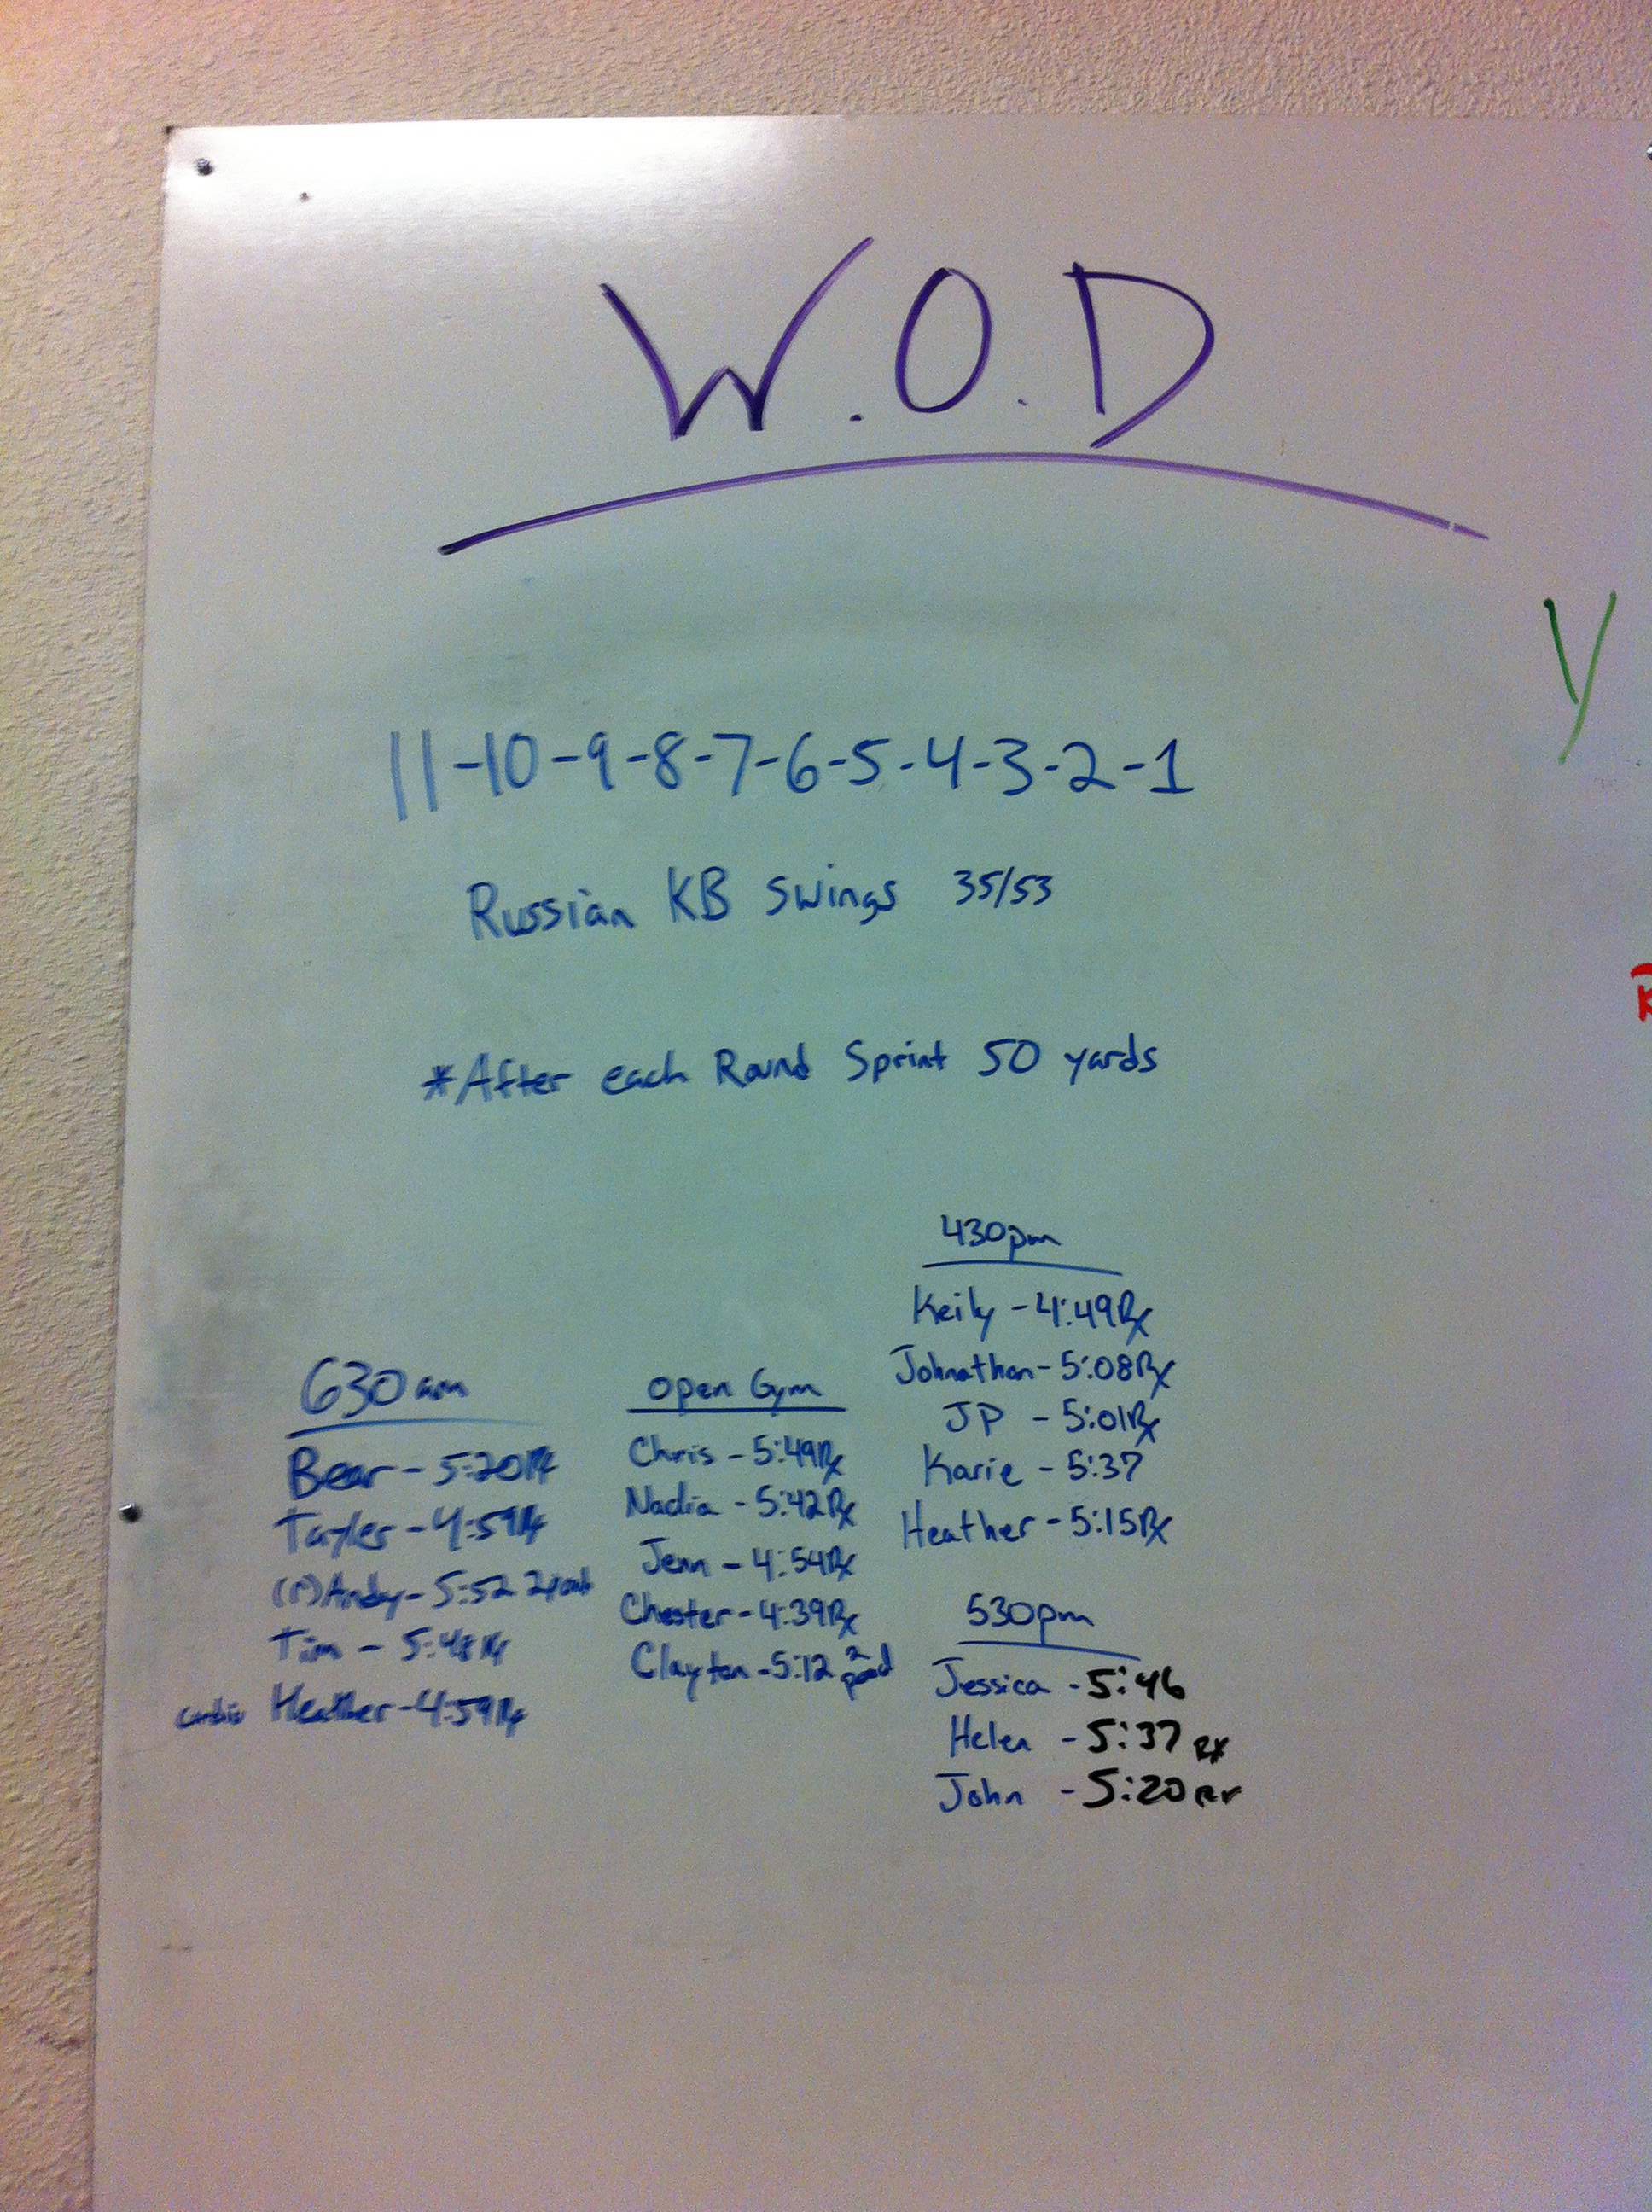 W.O.D
Y
11-10-9-8-7-6-5-4-3-2-1
Russian KB Swings 35/53
*After each Round Sprint 50 yards
630am
Bear - 5:20 Rx
Tayler - 4:59 Rx
(r) Andy - 5:52
Tim - 5:48 Rx
cardio Heather - 4:59 Rx
open Gym
Chris - 5:49 Rx
Nadia - 5:42 Rx
Jenn - 4:54 Rx
Chester - 4:39 Rx
Clayton - 5:12 2 pood
430pm
Keily - 4:49 Rx
Johnathan - 5:08 Rx
JP - 5:01 Rx
Karie - 5:37
Heather - 5:15 Rx
530pm
Jessica - 5:46
Helen - 5:37 RX
John - 5:20 RX